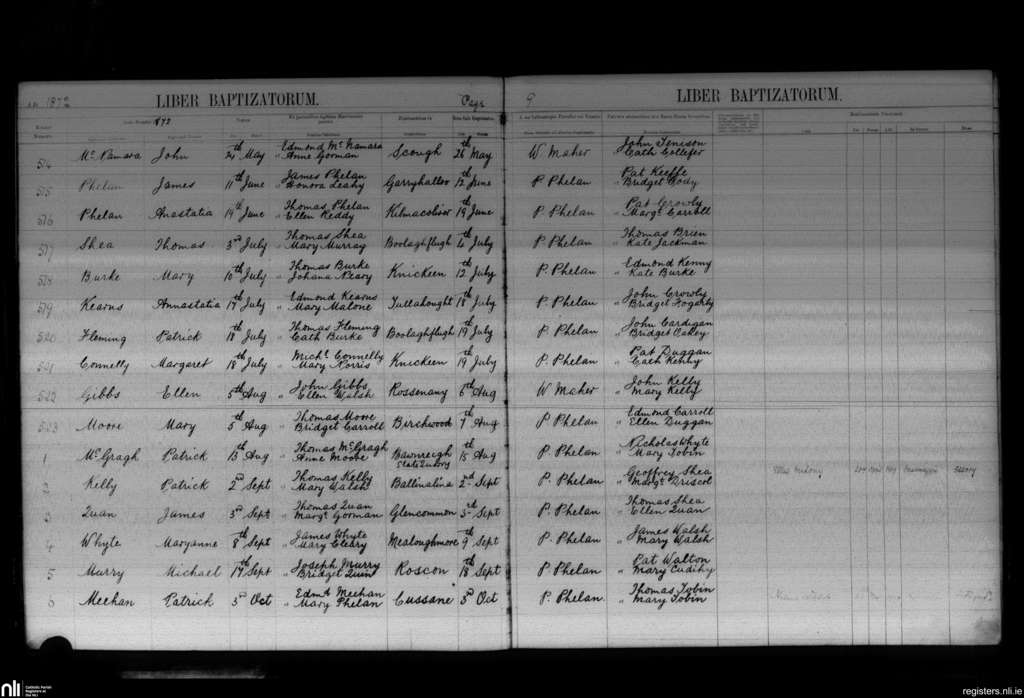 A.D. 1872 LIBER BAPTIZATORUM. Page 9 LIBER BAPTIZATORUM.
1872
514 McNamara John 24th May Edmond McNamara 26th May W Maher John Tenison
" Anne Gorman Scough Cath Collefer
515 Phelan James 11th June James Phelan Garryhallow 12th June P. Phelan Pat Keeffe
" Honora Leahy " Bridget Body
516 Phelan Anastatia 19th June Thomas Phelan Kilmacoliver 19th June P. Phelan Pat Crowly
" Ellen Reddy " Margt Carroll
517 Shea Thomas 3rd July Thomas Shea Boolaghflugh 4th July P. Phelan Thomas Brien
" Mary Murray " Kate Jackman
518 Burke Mary 10th July Thomas Burke Knickeen 12th July P. Phelan Edmond Kenny
" Johana Neary " Kate Burke
519 Kearns Annastatia 17th July Edmond Kearns Tullahought 18th July P. Phelan John Crowly
" Mary Malone " Bridget Fogarty
520 Fleming Patrick 18th July Thomas Fleming Boolaghflugh 19th July P. Phelan John Cardigan
" Cath Burke " Bridget Oakey
521 Connelly Margaret 18th July Michl Connelly Knickeen 19th July P. Phelan Pat Duggan
" Mary Norris " Cath Kenny
522 Gibbs Ellen 5th Aug John Gibbs Rossenany 6th Aug W Maher John Kelly
" Ellen Walsh " Mary Kelly
523 Moore Mary 5th Aug Thomas Moore Birchwood 7th Aug P. Phelan Edmond Carroll
" Bridget Carroll " Ellen Duggan
1 McGragh Patrick 13th Aug Thomas McGragh Bawnreigh 15th Aug P. Phelan Nicholas Whyte
" Anne Moore Slate Quarry " Mary Tobin
2 Kelly Patrick 2nd Sept Thomas Kelly Ballinalina 2nd Sept P. Phelan Geoffrey Shea
" Mary Walsh " Margt Driscol
3 Quan James 3rd Sept Thomas Quan Glencommon 3rd Sept P. Phelan Thomas Shea
" Margt Gorman " Ellen Quan
4 Whyte Maryanne 8th Sept James Whyte Mealoughmore 9th Sept P. Phelan James Walsh
" Mary Cleary " Mary Walsh
5 Murry Michael 17th Sept Joseph Murry Roscon 18th Sept P. Phelan Pat Walton
" Bridget Quin " Mary Cudihy
6 Meehan Patrick 3rd Oct Edmd Meehan Cussane 3rd Oct P. Phelan Thomas Tobin
" Mary Phelan " Mary Tobin
nli Catholic Parish
Registers at
the NLI
registers.nli.ie